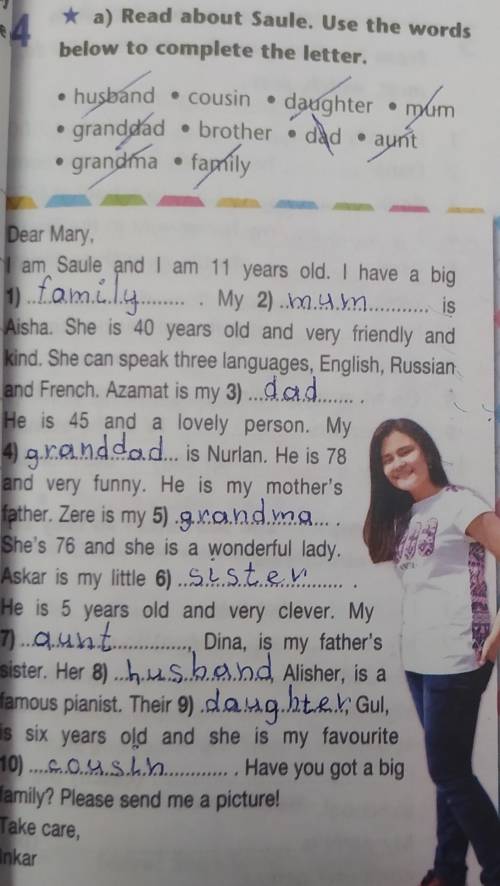 4 ★ a) Read about Saule. Use the words
below to complete the letter.
• husband • cousin • daughter • mum
• granddad • brother • dad • aunt
• grandma • family
Dear Mary,
I am Saule and I am 11 years old. I have a big
1) ..family......... . My 2) ..mum............ is
Aisha. She is 40 years old and very friendly and
kind. She can speak three languages, English, Russian
and French. Azamat is my 3) ...dad....... .
He is 45 and a lovely person. My
4) granddad... is Nurlan. He is 78
and very funny. He is my mother's
father. Zere is my 5) .grandma.... .
She's 76 and she is a wonderful lady.
Askar is my little 6) ..sister....... .
He is 5 years old and very clever. My
7) ..aunt..............., Dina, is my father's
sister. Her 8) ...husband, Alisher, is a
famous pianist. Their 9) .daughter, Gul,
is six years old and she is my favourite
10) ....cousin............. . Have you got a big
family? Please send me a picture!
Take care,
Inkar